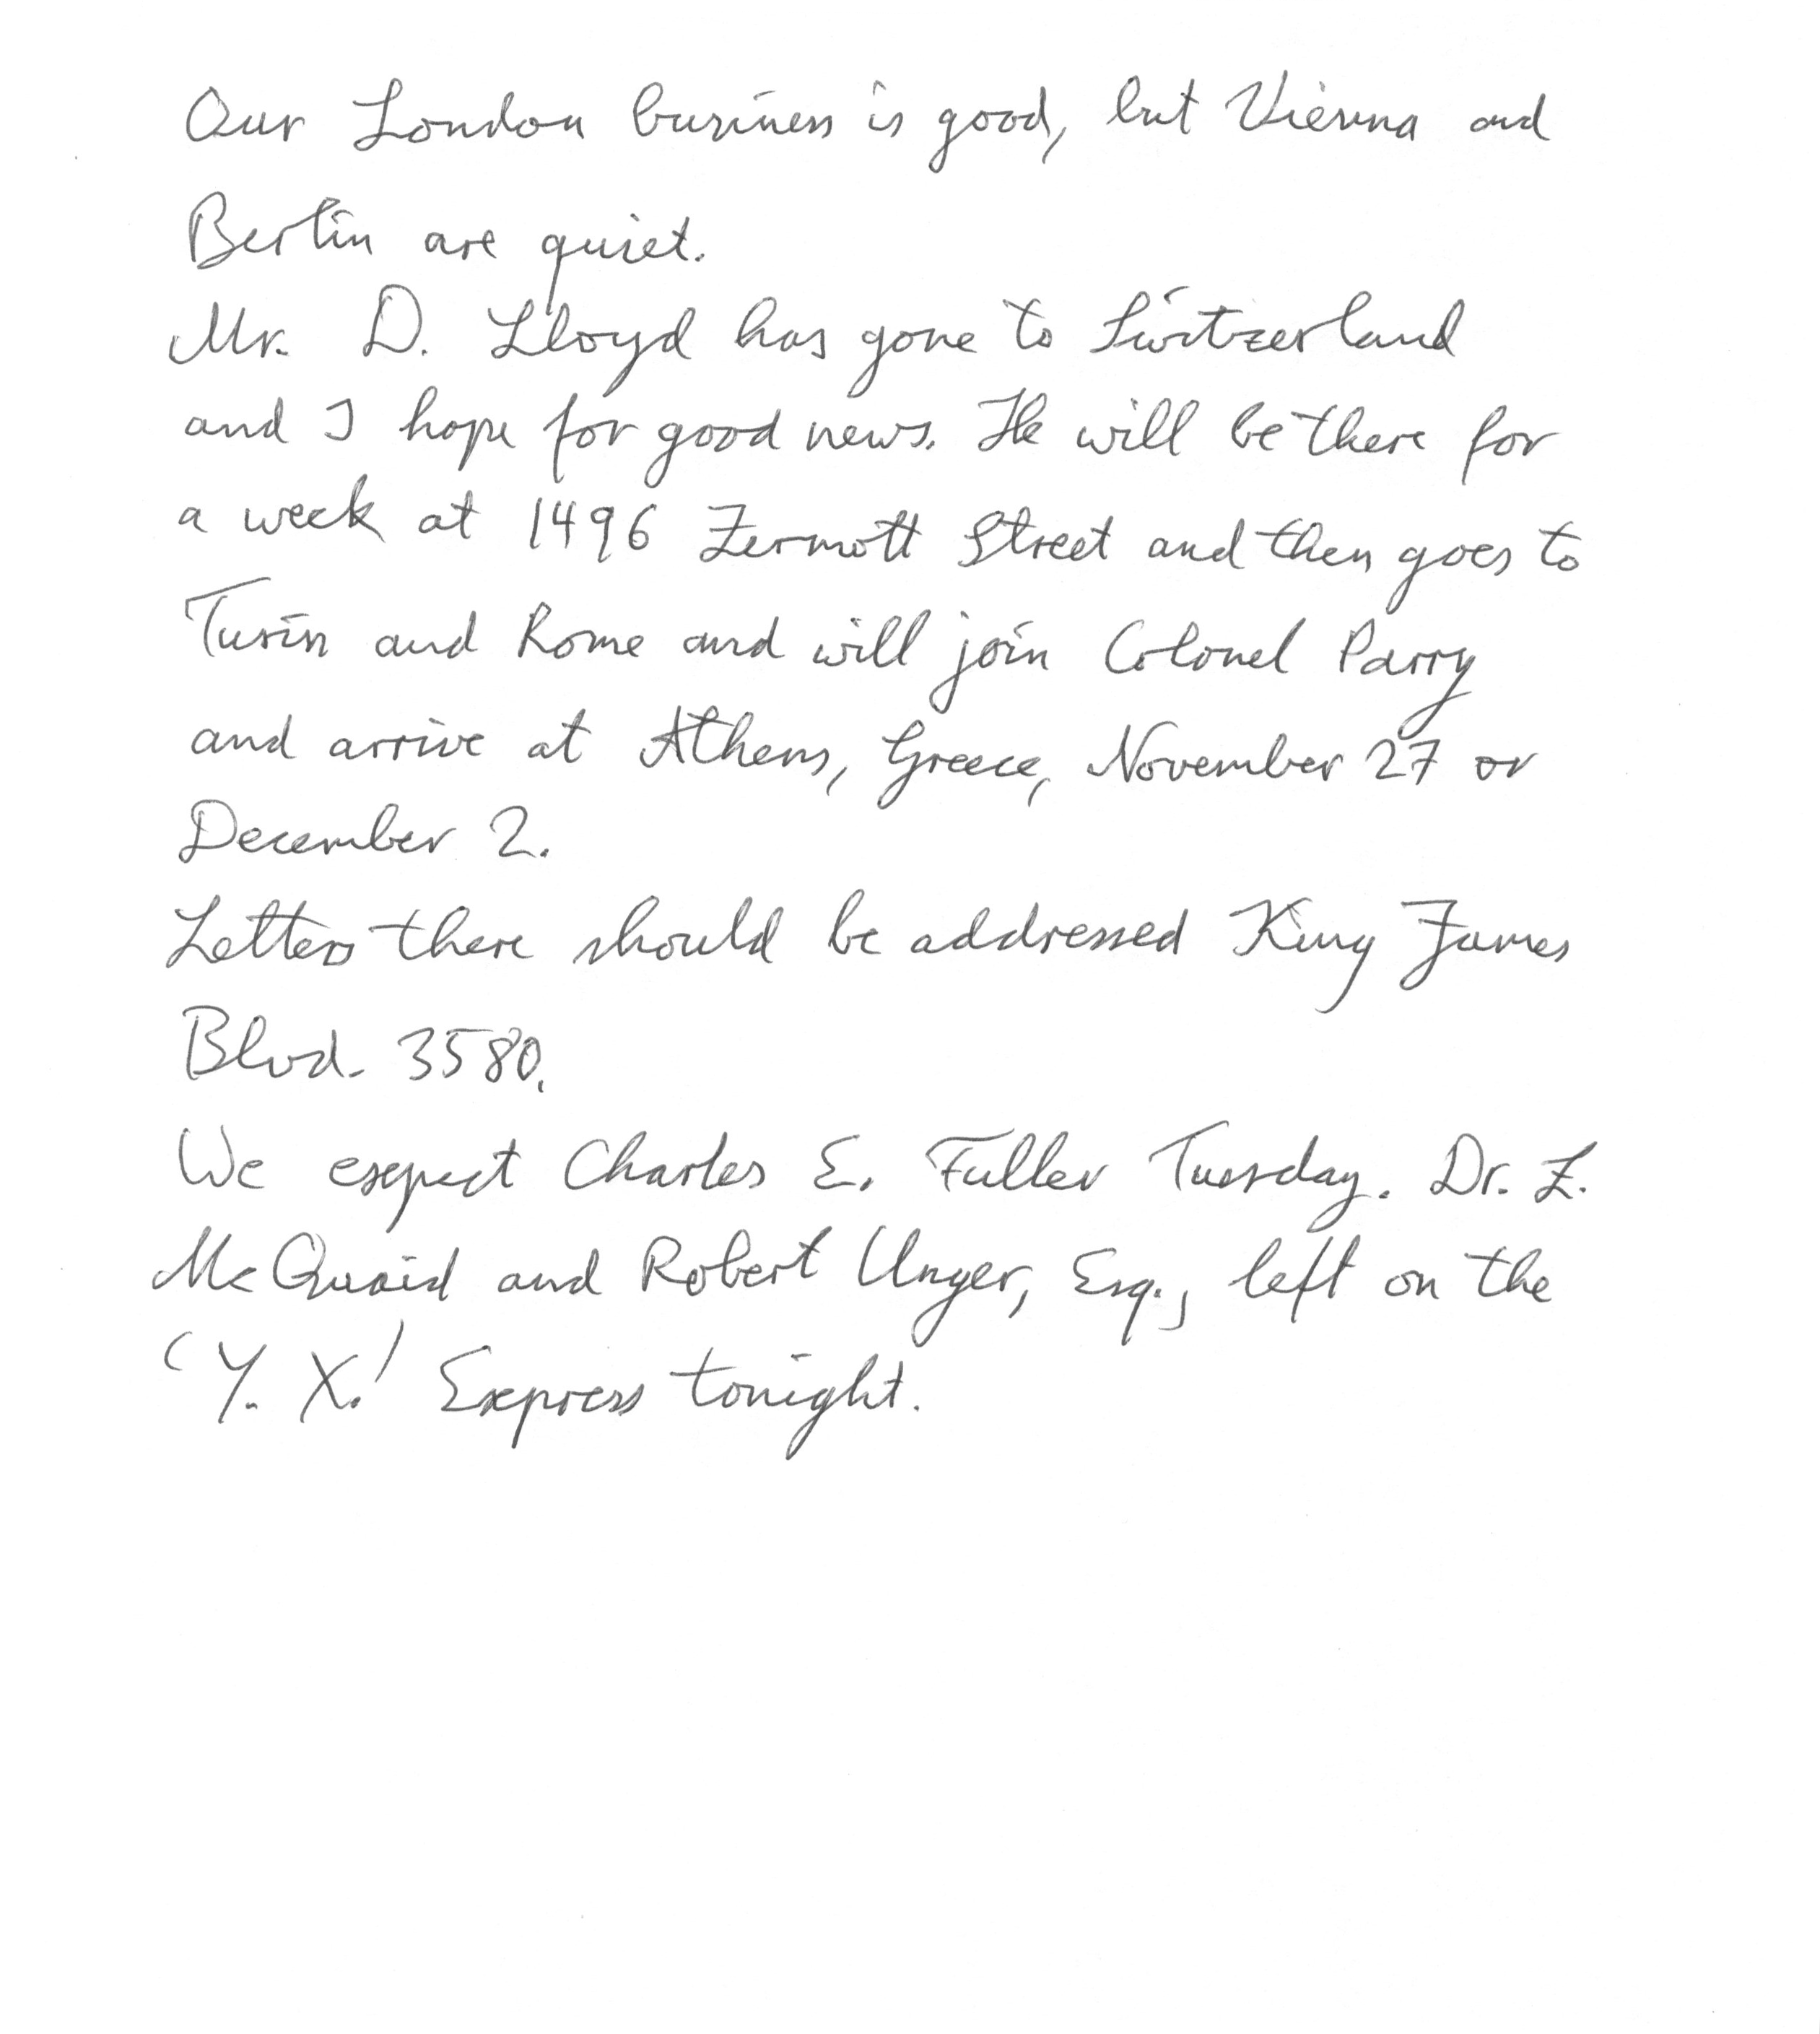 Our London business is good, but Vienna and
Berlin are quiet.
Mr. D. Lloyd has gone to Switzerland
and I hope for good news. He will be there for
a week at 1496 Zermott Street and then goes to
Turin and Rome and will join Colonel Parry
and arrive at Athens, Greece, November 27 or
December 2.
Letters there should be addressed King James
Blvd. 3580.
We expect Charles E. Fuller Tuesday. Dr. L.
McQuaid and Robert Unger, Esq., left on the
'Y. X.' Express tonight.